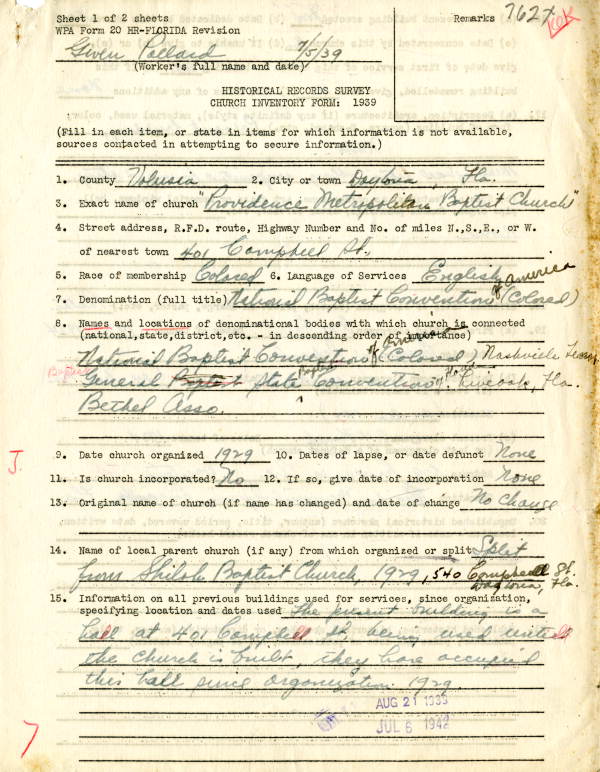 Sheet 1 of 2 sheets
Remarks 762x
WPA Form 20 HR-FLORIDA Revision
7/5/39
(Worker's full name and date)
HISTORICAL RECORDS SURVEY
CHURCH INVENTORY FORM: 1939
(Fill in each item, or state in items for which information is not available,
sources contacted in attempting to secure information.)
1. County Volusia 2. City or town Daytona, Fla.
3. Exact name of church "Providence Metropolitan Baptist Church"
4. Street address, R.F.D. route, Highway Number and No. of miles N.,S.,E., or W.
of nearest town 401 Campbell St.
5. Race of membership Colored 6. Language of Services English
of America
7. Denomination (full title) National Baptist Convention (Colored)
8. Names and locations of denominational bodies with which church is connected
(national,state,district,etc. - in descending order of importance)
of America
National Baptist Convention (Colored) Nashville Tenn.
Baptist
General State Baptist Convention of Florida, Live Oak, Fla.
Bethel Asso.
9. Date church organized 1929 10. Dates of lapse, or date defunct None
11. Is church incorporated? No 12. If so, give date of incorporation None
13. Original name of church (if name has changed) and date of change No Change
14. Name of local parent church (if any) from which organized or split Split
from Shiloh Baptist Church, 1929, 540 Campbell St.
Daytona, Fla.
15. Information on all previous buildings used for services, since organization,
specifying location and dates used The present building is a
hall at 401 Campbell St, being used until
the church is built, they have occupied
this hall since organization 1929
AUG 21 1939
JUL 6 1942